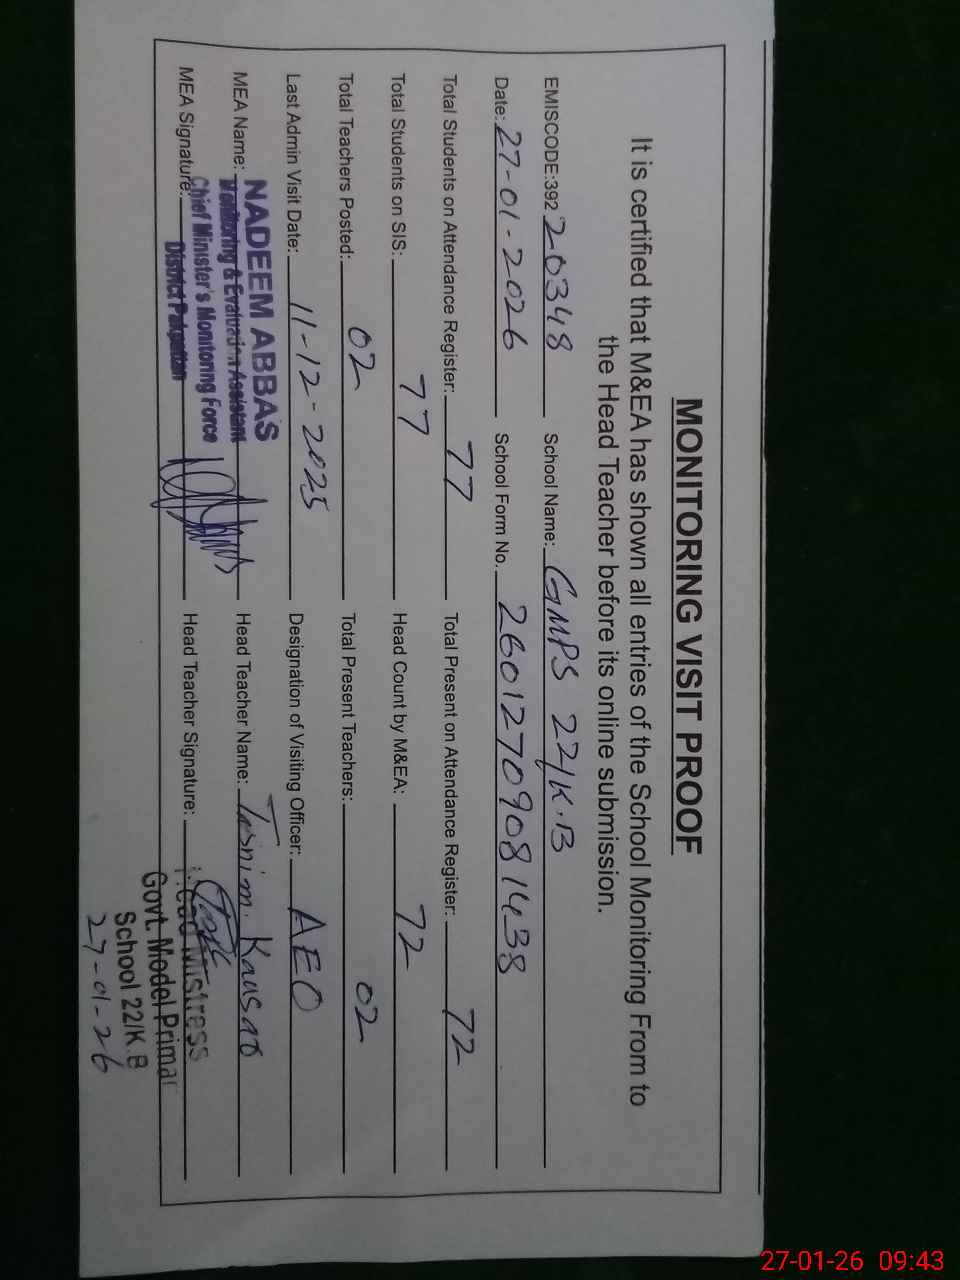 MONITORING VISIT PROOF
It is certified that M&EA has shown all entries of the School Monitoring From to
the Head Teacher before its online submission.
EMISCODE:392 20348 School Name: GMPS 22/K.B
Date: 27-01-2026 School Form No. 2601270908 1438
Total Students on Attendance Register: 77 Total Present on Attendance Register: 72
Total Students on SIS: 77 Head Count by M&EA: 72
Total Teachers Posted: 02 Total Present Teachers: 02
Last Admin Visit Date: 11-12-2025 Designation of Visiting Officer: AEO
MEA Name: NADEEM ABBAS Head Teacher Name: Tasnim Kausar
Monitoring & Evaluation Assistant
Chief Minister's Monitoring Force
District Pakpattan
MEA Signature: Head Teacher Signature:
Head Mistress
Govt. Model Primar
School 22/K.B
27-01-26
27-01-26 09:43